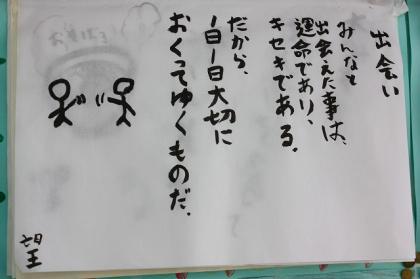 出会い
みんなと
出会えた事は、
運命であり、
キセキである。
だから、
1日1日大切に
おくってゆくものだ。
望